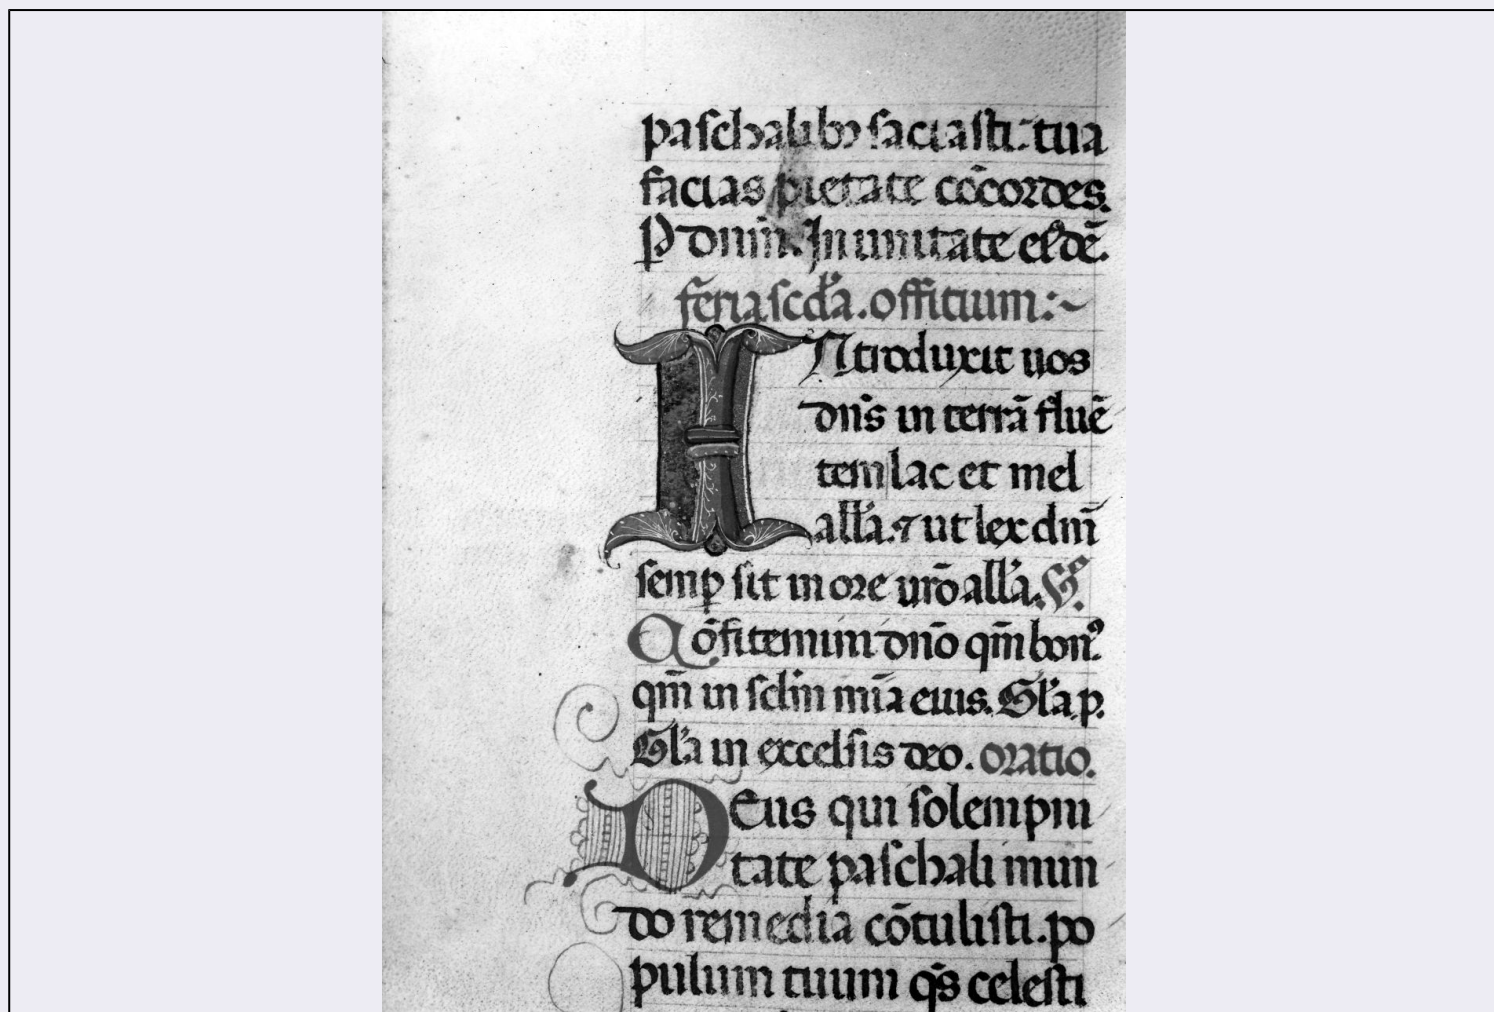 paschalibꝫ saciasti. tua
facias pietate cōcordes.
P dnm̄. In unitate eiꝰdē.
feria scd̓a. offitium:~
INtroduxit uos
dn̄s in terrā fluē
tem lac et mel
all̓a. ⁊ ut lex dn̄i
semꝑ sit in ore ur̄o all̓a. P̓s.
Cōfitemini dn̄o qm̄ bonꝰ.
qm̄ in sclm̄ mīa eius. Gl̓a p.
Gl̓a in excelsis deo. oratio.
DEus qui solempni
tate paschali mun
do remedia cōtulisti. po
pulum tuum qs̄ celesti